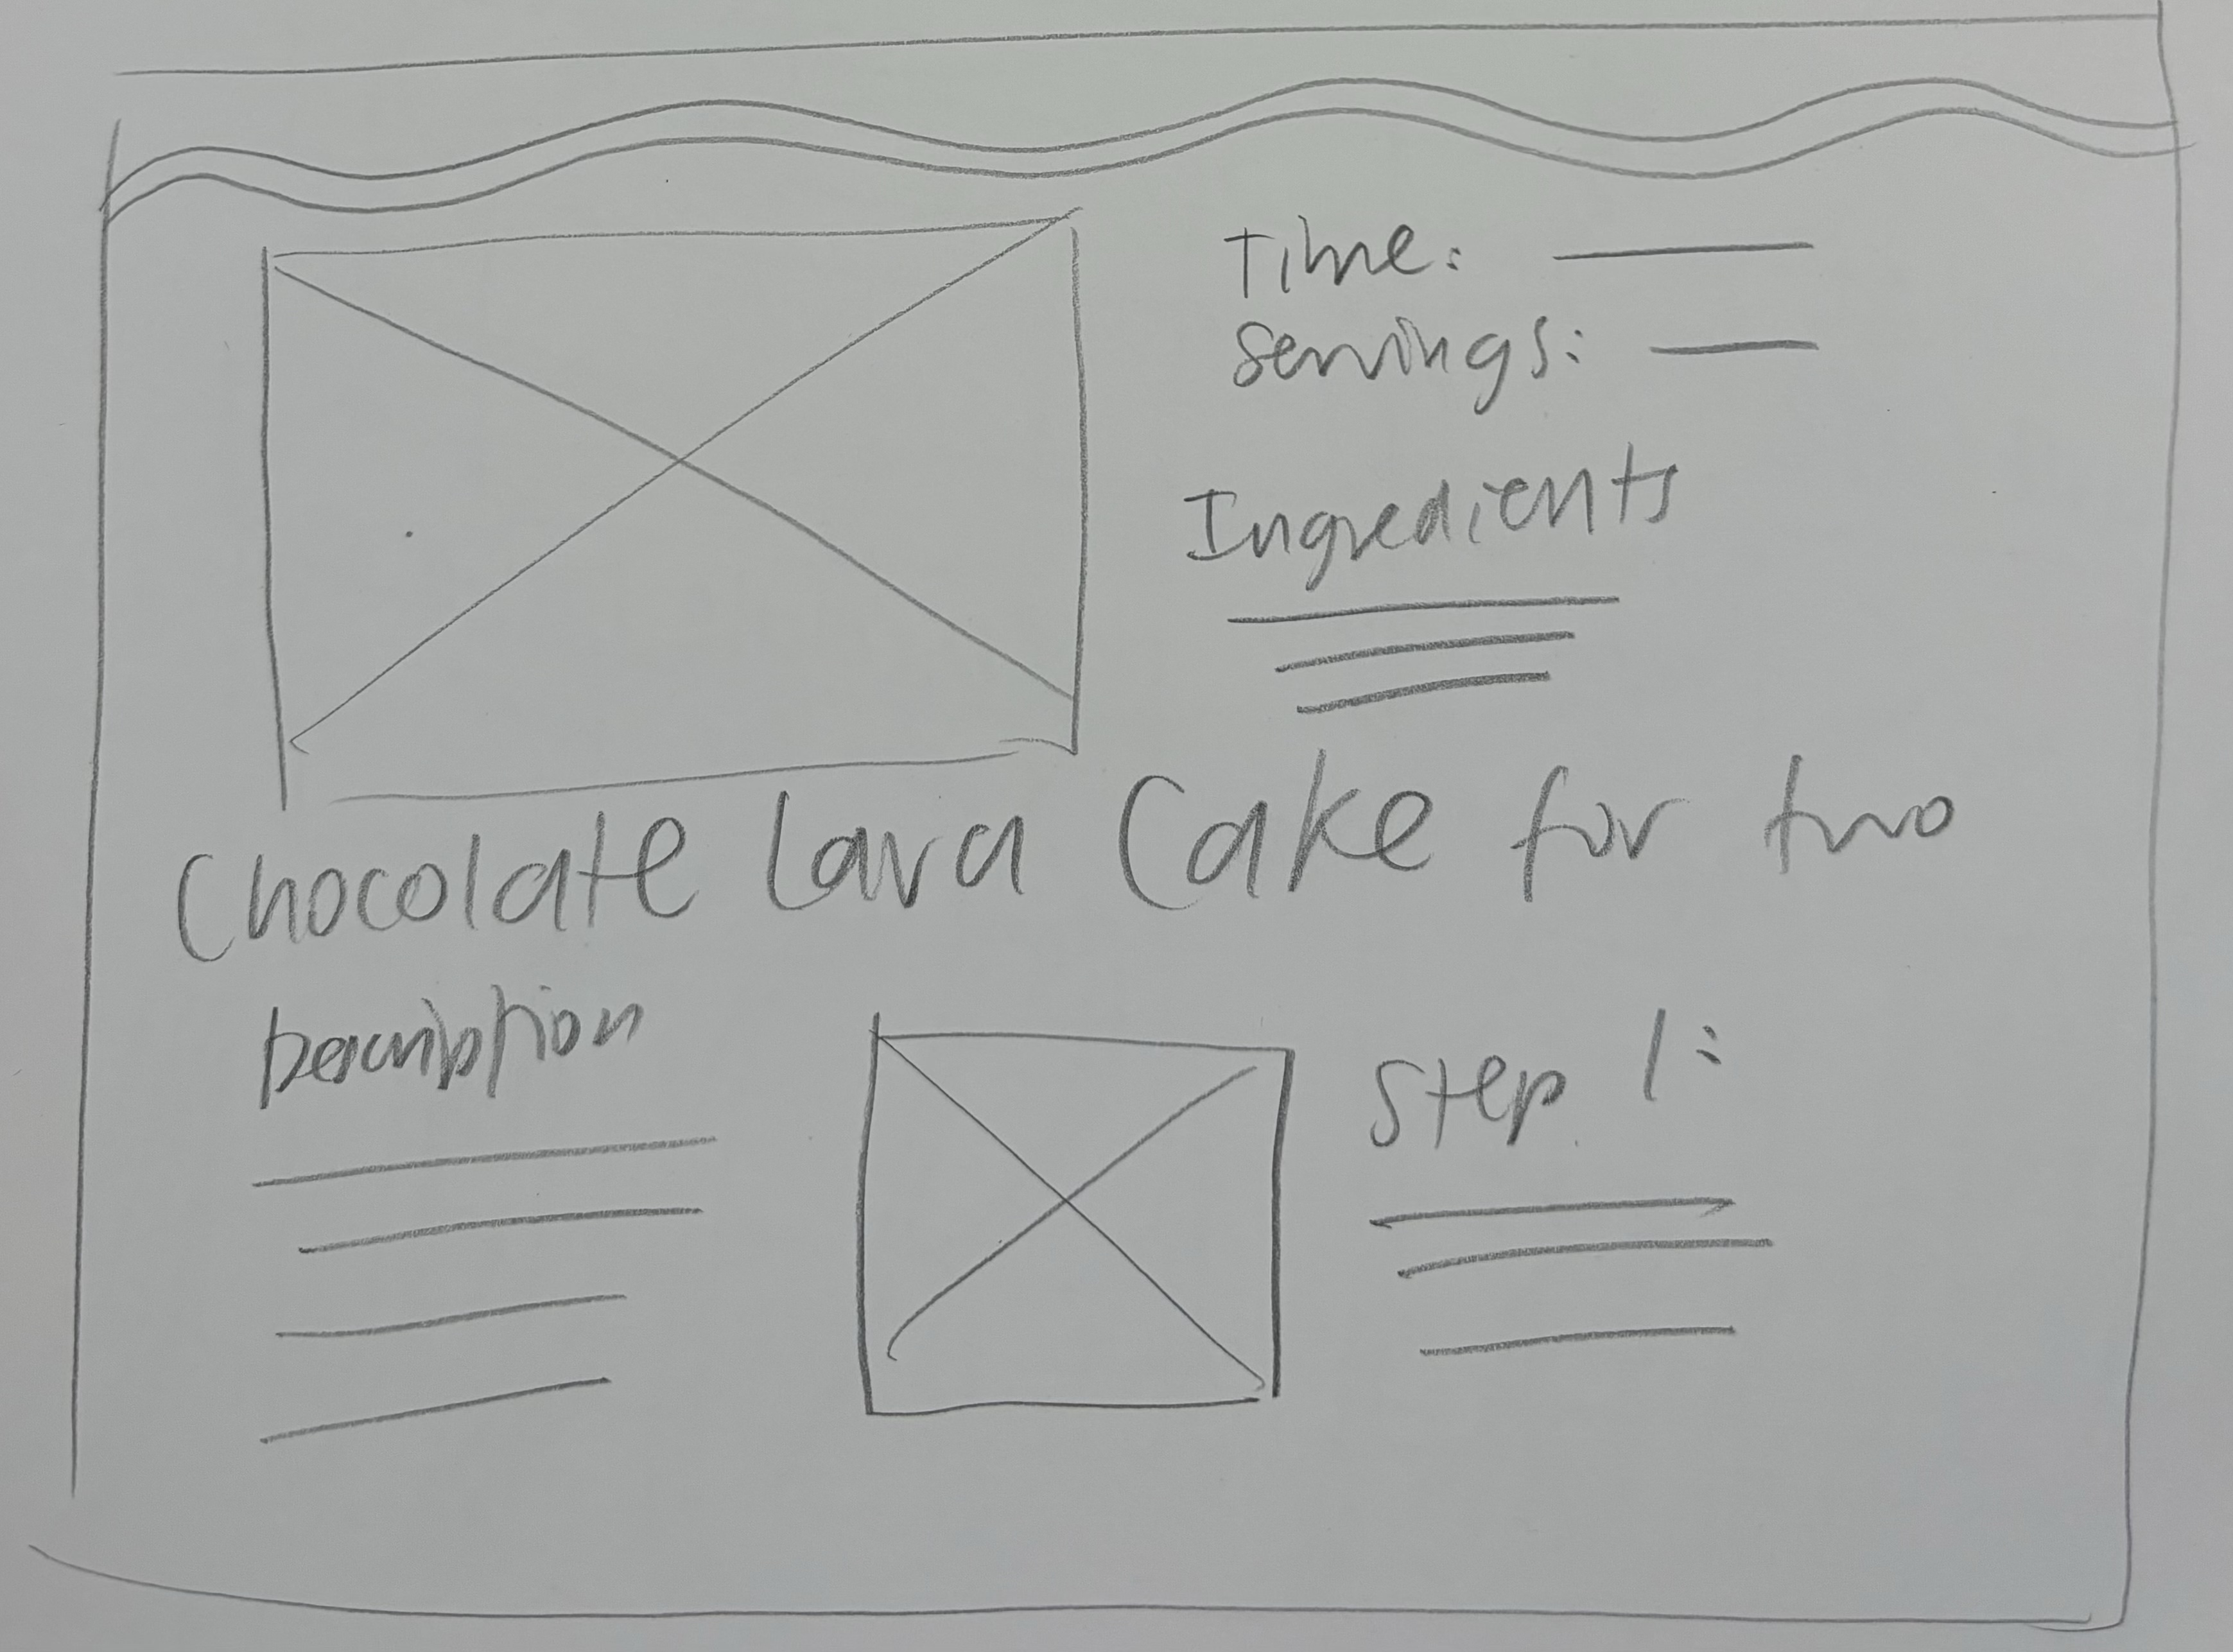 Time:
Servings:
Ingredients
Chocolate Lava Cake for two
Description
Step 1: